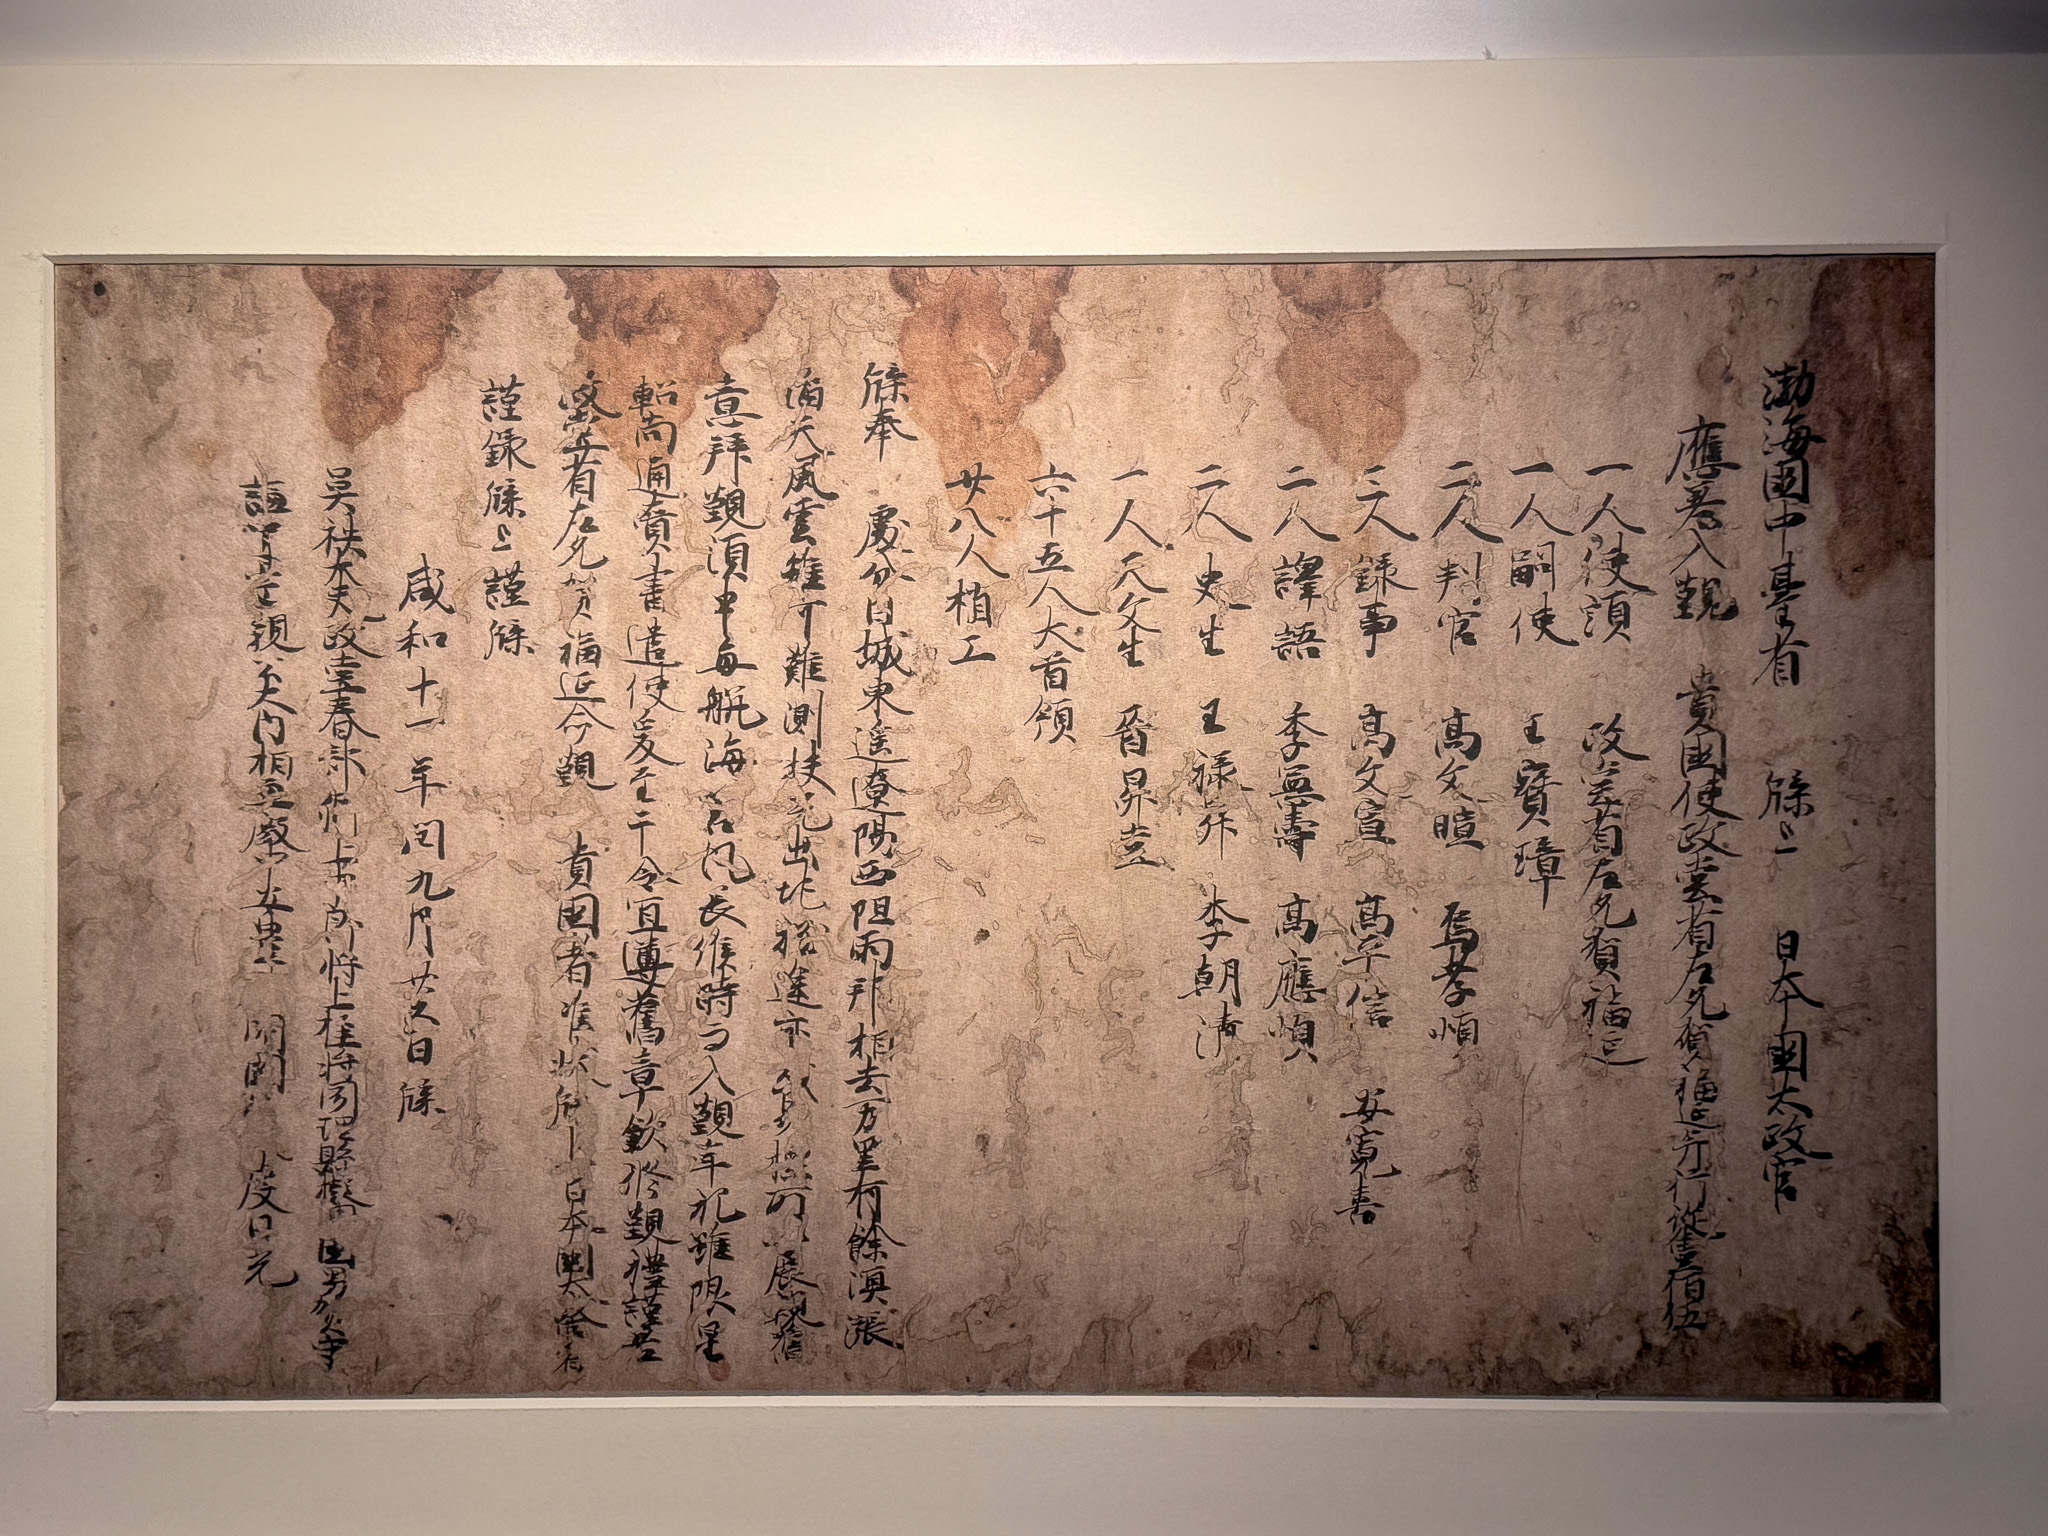 渤海國中臺省 牒上 日本國太政官
應差入覲 貴國使政堂省左允賀福延并行從壹佰伍
一人使頭 政堂省左允賀福延
一人嗣使 王寶璋
二人判官 高文暄 烏孝順
三人錄事 高文宣 高平信 安寬喜
二人譯語 季憲壽 高應順
二人史生 王祿昇 李朝清
一人天文生 晉昇堂
六十五人大首領
廿八人梢工
牒奉 處分日域東遙遼陽西阻兩邦相去万里有餘溟漲
滔天風雲雖可難測扶光出地程途亦或易標所以展親舊
意拜覲須申每航海以占風長候時而入覲年祀雖限星
軺尚通賫書遣使爰至于今宜遵舊章欽修覲禮謹差
政堂省左允賀福延令覲 貴國者准狀牒上日本國太政官者
謹錄牒上謹牒
咸和十一年閏九月廿五日牒
吳秩大夫政堂春部卿 上 中郎將上柱將 開 理縣擬 國男
謹 臺親 大內相 殿 安豊 開國 虔日光